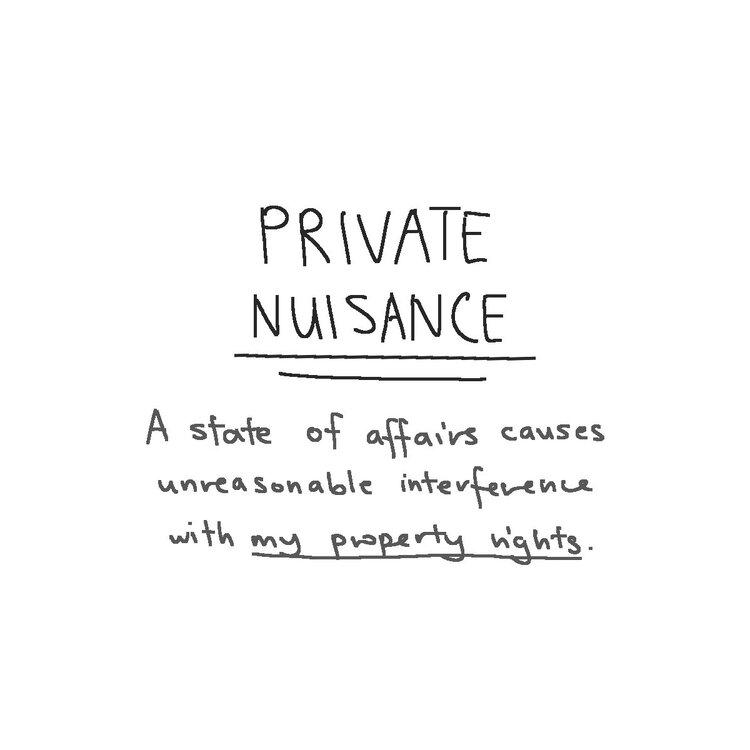 PRIVATE
NUISANCE
A state of affairs causes
unreasonable interference
with my property rights.